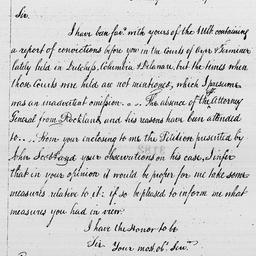 Sir.
I have been fav.d with yours of the Ult. containing
a report of convictions before you in the Courts of Oyer & Terminer
lately held in Dutchess, Columbia & Delaware, but the times when
those Courts were held are not mentioned, which I presume
was an inadvertent omission. _ _ The absence of the Attorney
General from Rockland, and his reasons have been attended
to _ . . . From your inclosing to me the Petition presented by
John and your observations on his case, I infer
that in your opinion it would be proper for me take some
measures relative to it: if so be pleased to inform me what
measures you had in view.
I have the Honor to be
Sir Your most ob. Serv.t